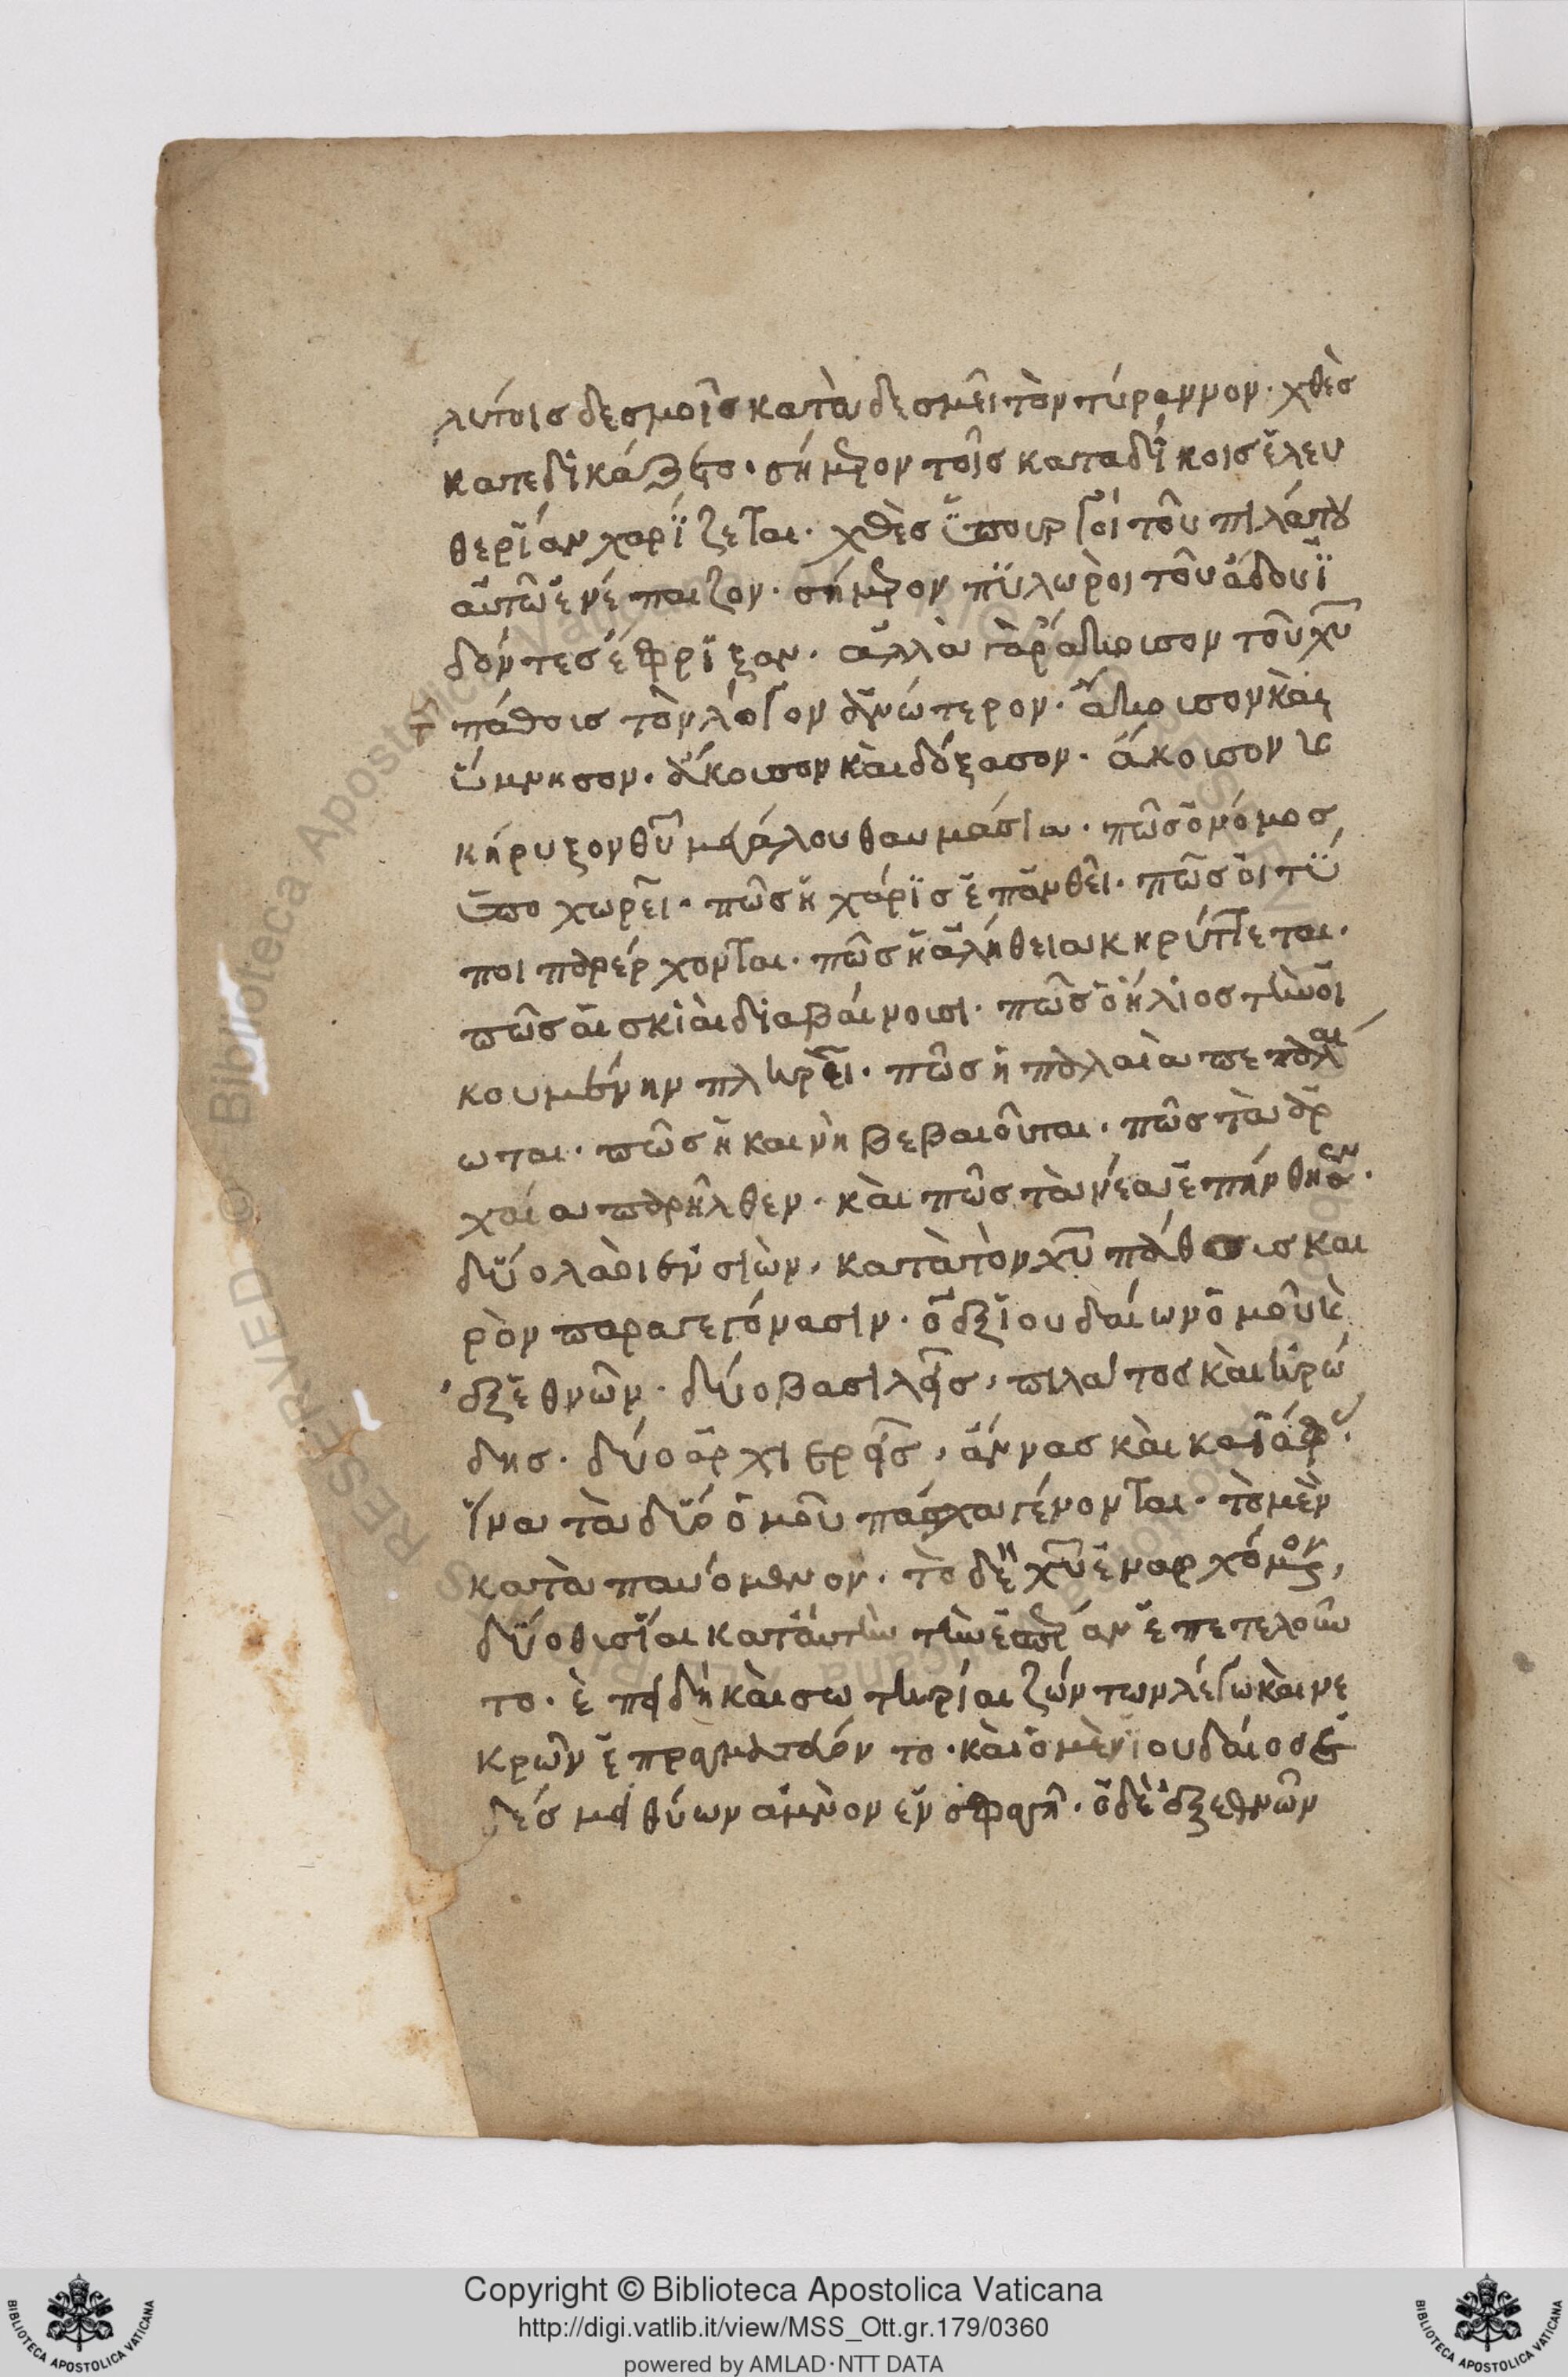 λύτοις δεσμοῖς κατὰ δεσμεῖ τὸν τύραννον· χθὲς
κατεδικάζετο· σήμερον τοῖς καταδίκοις ἐλευ
θερίαν χαρίζεται· χθὲς ὑπουργοὶ τοῦ πιλάτου
αὐτῶ ἐνέπαιζον· σήμερον πϋλωρὸι τοῦ ἅδου ϊ
δόντες ἔφριξαν· ἀλλὰ γὰρ ἄκουσον τοῦ χυ
πάθους τὸν λόγον ἀνώτερον· ἄκουσον κὰι
ὕμνησον· ἄκουσον κὰι δόξασον· ἄκουσον κ
κήρυξον θυ μεγάλου θαυμάσια· πῶς ὁ νόμος
ὑποχωρεῖ· πῶς ἡ χάρις ἐπανθεῖ· πῶς ὁι τύ
ποι παρέρχονται· πῶς ἡ ἀλήθεια κηρύττεται·
πῶς ἁι σκιὰι διαβαίνουσι· πῶς ὁ ἥλιος τὴν ὁι
κουμένην πληρεῖ· πῶς ἡ παλαιὰ πεπαλαί
ωται· πῶς ἡ καινὴ βεβαιοῦται· πῶς τὰ ἀρ
χαία παρῆλθεν· κὰι πῶς τὰ νέα ἐπήνθησεν·
δύο λαὸι ἐν σιὼν, κατὰ τὸν χυ πάθους και
ρὸν παραγεγόνασιν· ὁ ἐξ ἰουδαίων ὁμοῦ κὲ
ἐξ ἐθνῶν· δύο βασιλεῖς, πιλάτος κὰι ἡρώ
δης· δύο ἀρχιερεῖς, ἄννας κὰι καϊάφας·
ἵνα τὰ δύο ὁμοῦ πάσχα γένονται· τὸ μὲν
κατὰ παυόμενον· τὸ δὲ χυ ἐναρχόμενον,
δύο θυσίαι κατἀυτὴν τὴν ἑσπέραν ἐπετελοῦν
το· ἐπειδὴ κὰι σωτηρίαι ζώντων λέγω κὰι νε
κρῶν ἐπραγματεύοντο· κὰι ὁ μὲν ἰουδαίος ἐ
δέσμει θύων ἀμνὸν ἐν σφαγῆ· ὁ δὲ ἐξ ἐθνῶν
Copyright © Biblioteca Apostolica Vaticana
http://digi.vatlib.it/view/MSS_Ott.gr.179/0360
powered by AMLAD·NTT DATA